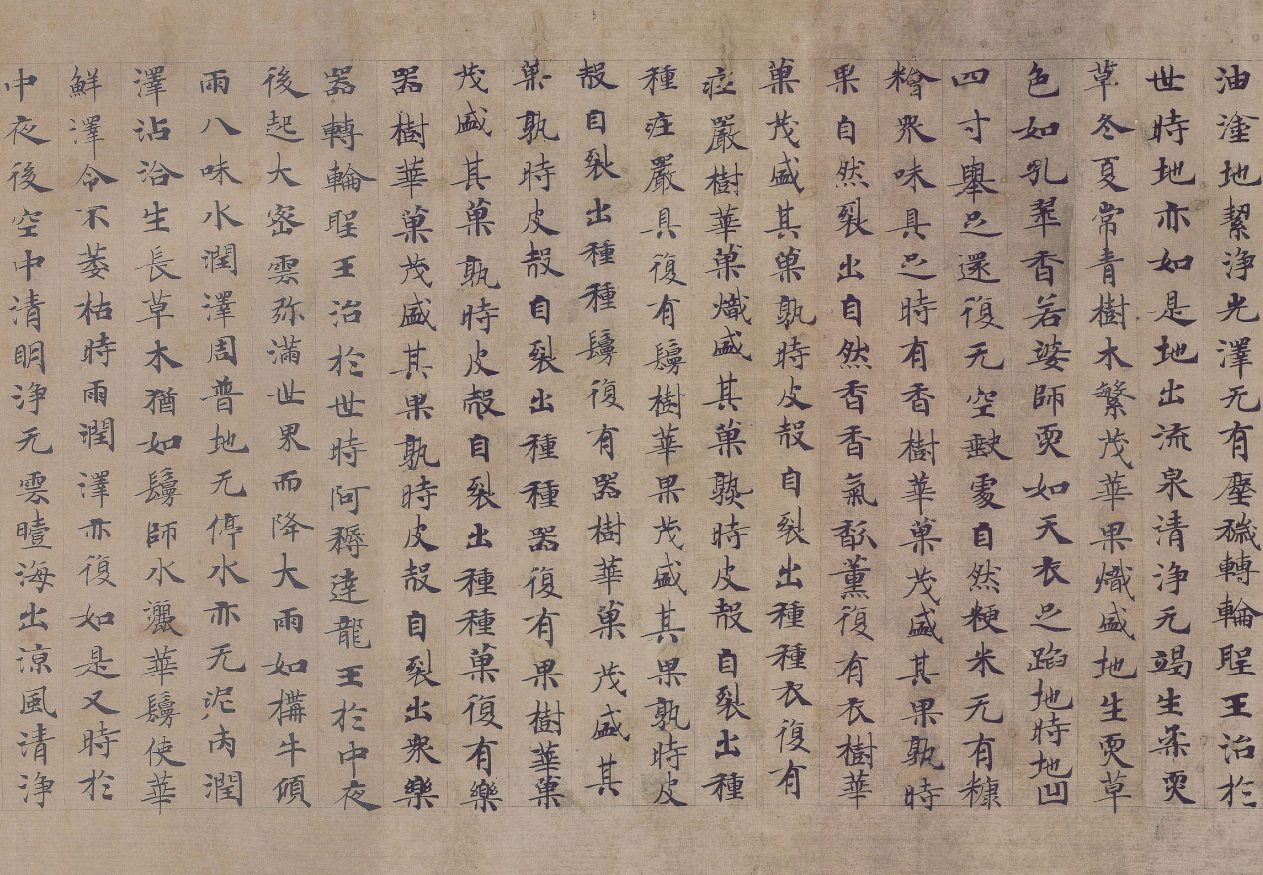 油塗地絜淨光澤无有塵穢轉輪聖王治於
世時地亦如是地出流泉清淨无竭生柔耎
草冬夏常青樹木繁茂華果熾盛地生耎草
色如孔翠香若婆師耎如天衣足蹈地時地凹
四寸舉足還復无空缺處自然粳米无有糠
糩衆味具足時有香樹華菓茂盛其果孰時
果自然裂出自然香香氣馚薰復有衣樹華
菓茂盛其菓孰時皮殻自裂出種種衣復有
莊嚴樹華菓熾盛其菓孰時皮殻自裂出種
種莊嚴具復有鬘樹華果茂盛其果孰時皮
殻自裂出種種鬘復有器樹華菓茂盛其
菓孰時皮殻自裂出種種器復有果樹華菓
茂盛其菓孰時皮殻自裂出種種菓復有樂
器樹華菓茂盛其果孰時皮殻自裂出衆樂
器轉輪聖王治於世時阿耨達龍王於中夜
後起大密雲弥滿世界而降大雨如構牛傾
雨八味水潤澤周普地无停水亦无泥洿潤
澤沾洽生長草木猶如鬘師水灑華鬘使華
鮮澤令不萎枯時雨潤澤亦復如是又時於
中夜後空中清明淨无雲曀海出涼風清淨